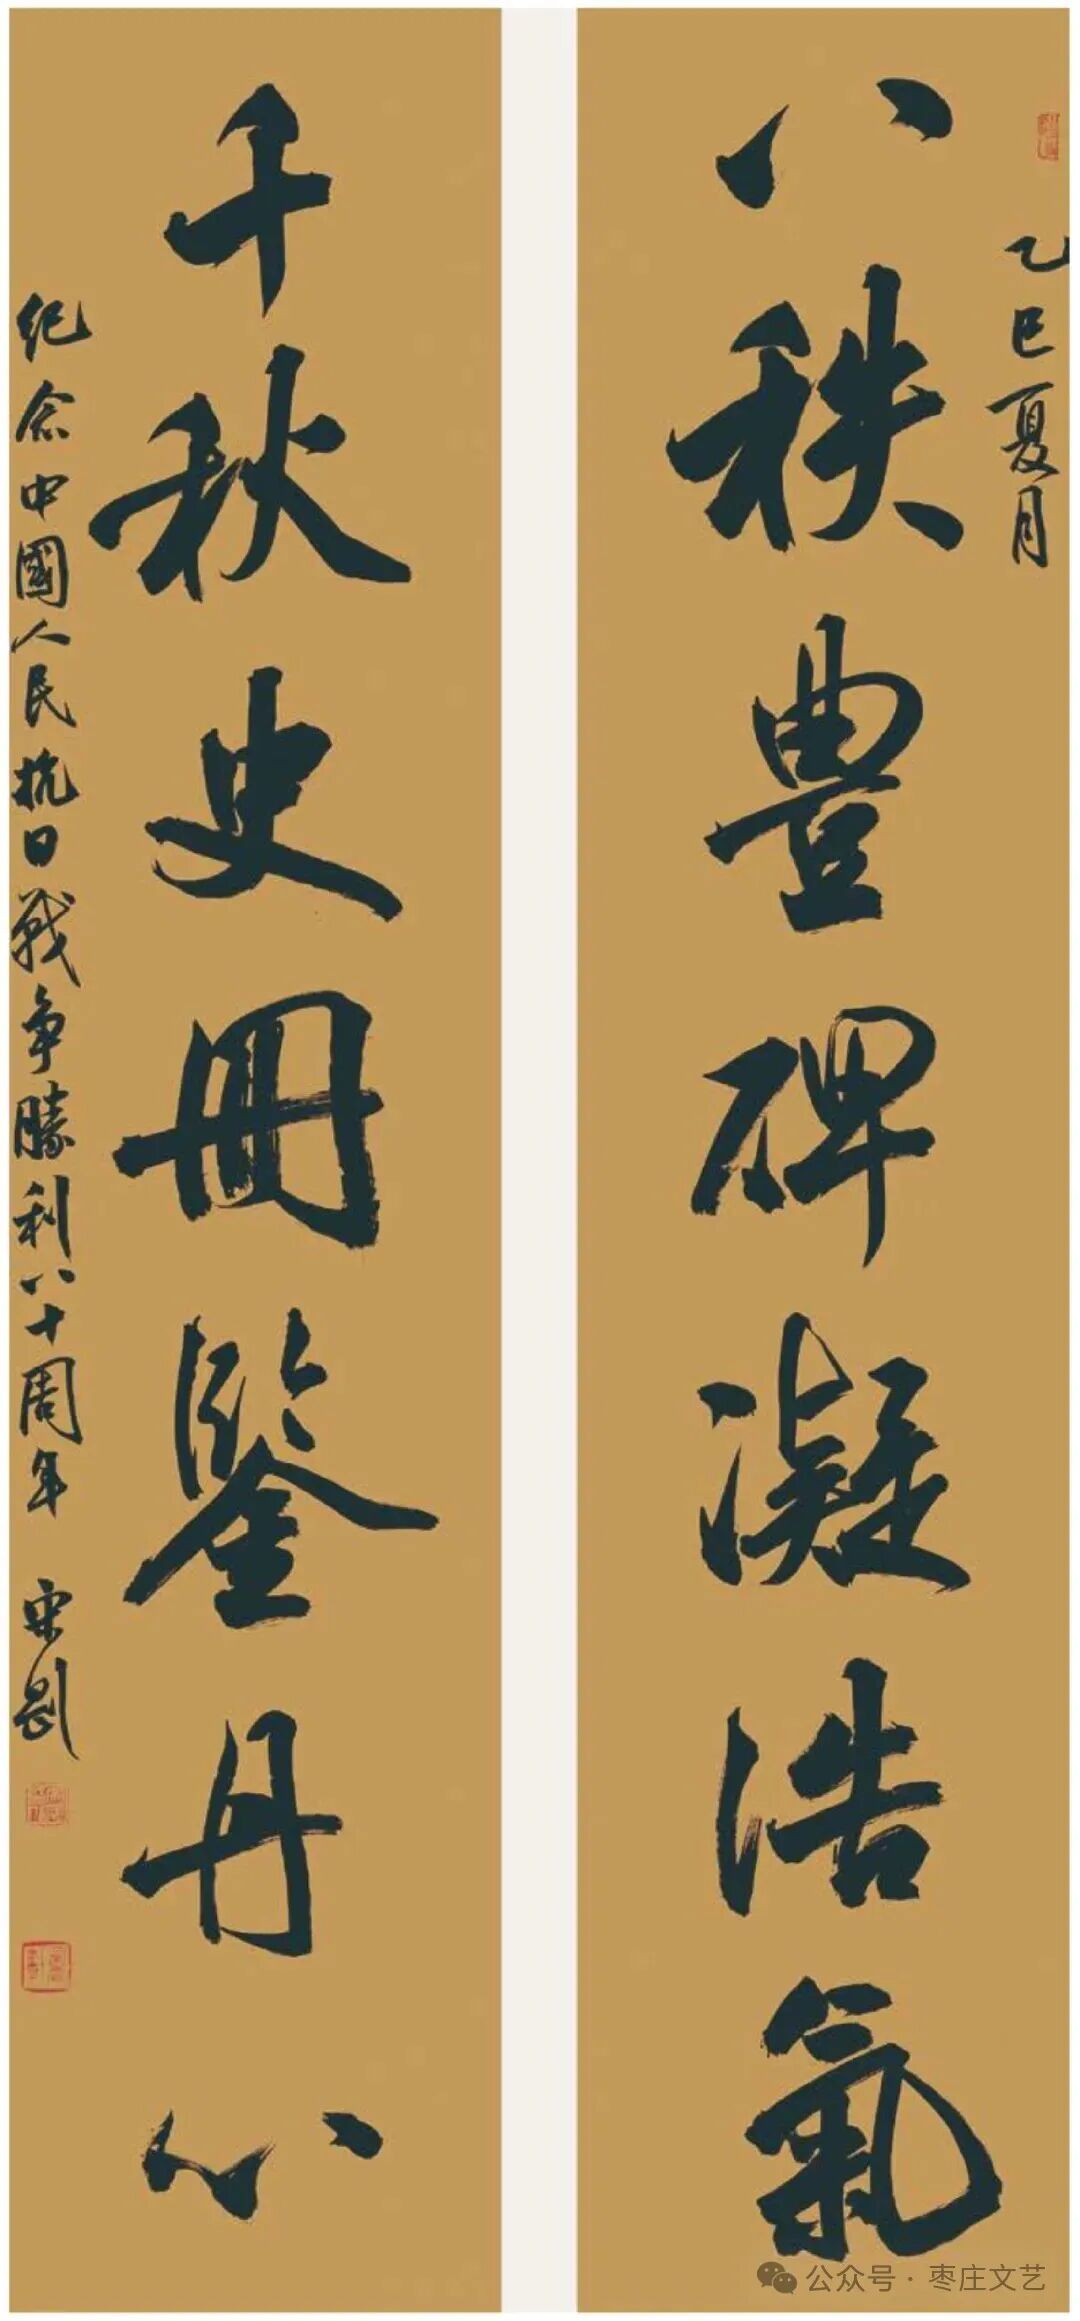 乙巳夏月
八秩豐碑凝浩氣
千秋史冊鑒丹心
纪念中國人民抗日戰争勝利八十周年 宋剧
公众号·枣庄文艺